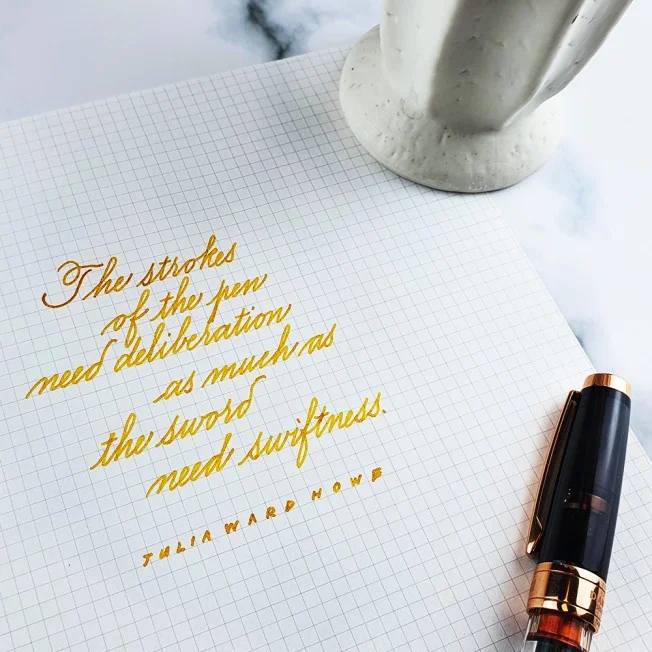 The strokes
of the pen
need deliberation
as much as
the sword
need swiftness.
JULIA WARD HOWE